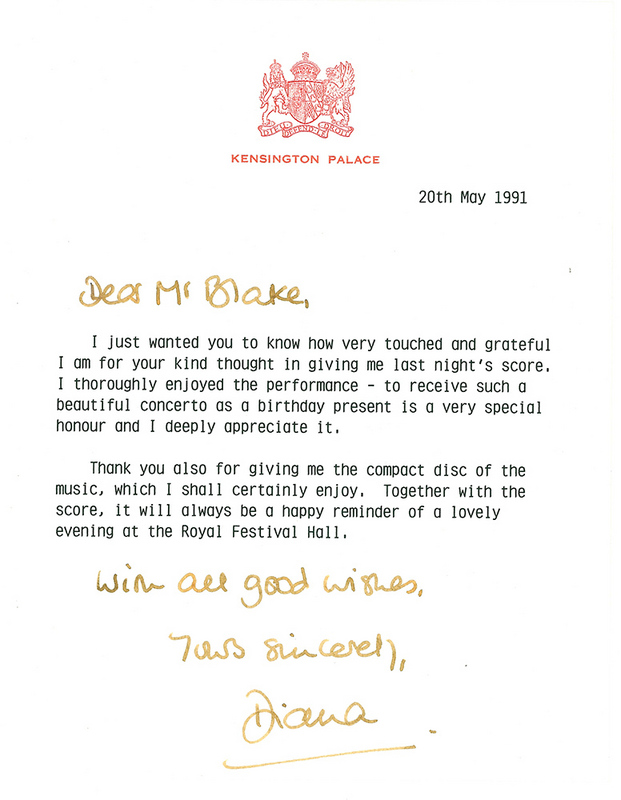 DIEU DEFEND LE DROIT
KENSINGTON PALACE
20th May 1991
Dear Mr Blake,
I just wanted you to know how very touched and grateful
I am for your kind thought in giving me last night's score.
I thoroughly enjoyed the performance - to receive such a
beautiful concerto as a birthday present is a very special
honour and I deeply appreciate it.
Thank you also for giving me the compact disc of the
music, which I shall certainly enjoy. Together with the
score, it will always be a happy reminder of a lovely
evening at the Royal Festival Hall.
With all good wishes,
Yours sincerely,
Diana